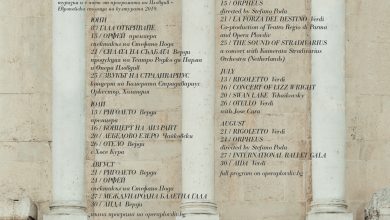 Европейска столица на културата 2019.
ЮНИ
07/ ГАЛА ОТКРИВАНЕ
15 / ОРФЕЙ премиера
спектакъл на Стефано Пода
21 / СИЛАТА НА СЪДБАТА Верди
продукция на Театро Реджо ди Парма
и Опера Пловдив
25 / ЗВУКЪТ НА СТРАДИВАРИУС
Оркестър, Холандия
ЮЛИ
13 / РИГОЛЕТО Верди
премиера
16 / КОНЦЕРТ НА ЛИЗ РАЙТ
20 / ЛЕБЕДОВО ЕЗЕРО Чайковски
26 / ОТЕЛО Верди
с Хосе Кура
АВГУСТ
21 / РИГОЛЕТО Верди
24 / ОРФЕЙ
спектакъл на Стефано Пода
27 / МЕЖДУНАРОДНА БАЛЕТНА ГАЛА
30 / АИДА Верди
operaplovdiv.bg
15 / ORPHEUS
directed by Stefano Poda
21 / LA FORZA DEL DESTINO Verdi
Co-production of Teatro Regio di Parma
and Opera Plovdiv
25 / THE SOUND OF STRADIVARIUS
a concert with Kamerata Stradivarius
Orchestra (Netherlands)
JULY
13 / RIGOLETTO Verdi
16 / CONCERT OF LIZZ WRIGHT
20 / SWAN LAKE Tchaikovsky
26 / OTELLO Verdi
with Jose Cura
AUGUST
21 / RIGOLETTO Verdi
24 / ORPHEUS
directed by Stefano Poda
27 / INTERNATIONAL BALLET GALA
30 / AIDA Verdi
full program on operaplovdiv.bg